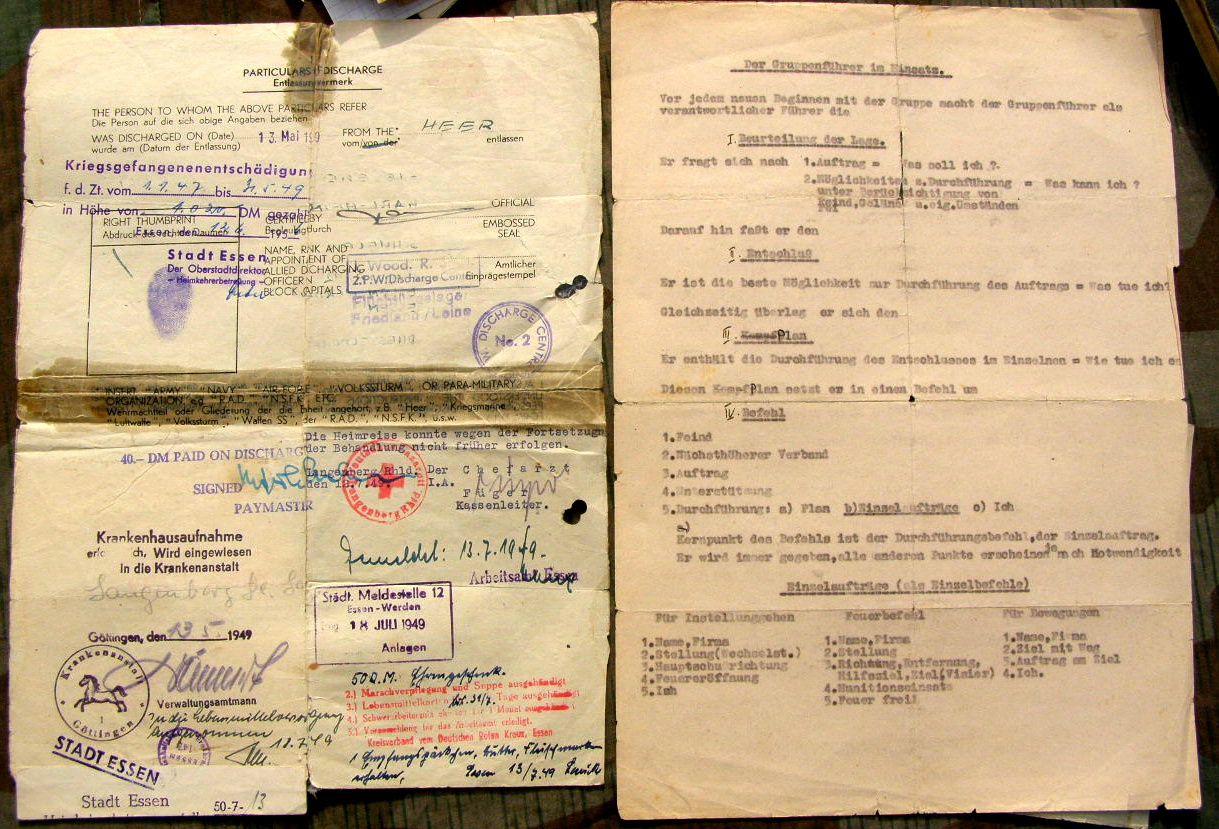 PARTICULARS OF DISCHARGE
Entlassungsvermerk
THE PERSON TO WHOM THE ABOVE PARTICULARS REFER
Die Person auf die sich obige Angaben beziehen
WAS DISCHARGED ON (Date) 13. Mai 19 FROM THE* HEER
wurde am (Datum der Entlassung) vom/von der* entlassen
Kriegsgefangenenentschädigung
f. d. Zt. vom 1.1.47 bis 31.5.49
in Höhe von DM gezahlt
RIGHT THUMBPRINT
Abdruck des rechten Daumens
Essen, den 195
CERTIFIED BY
Beglaubigt durch
OFFICIAL
EMBOSSED
SEAL
Amtlicher
Einprägestempel
Stadt Essen
Der Oberstadtdirektor
- Heimkehrerbetreuung -
NAME, RNK AND
APPOINTMENT OF
ALLIED DICHARGING
OFFICER IN
BLOCK CAPITALS
Wood. R.
2.P.W.Discharge Cent
Friedland/Leine
W. DISCHARGE CENTRE
No. 2
* INSERT "ARMY" "NAVY" "AIR FORCE" "VOLKSSTURM", OR PARA-MILITARY
ORGANIZATION, e.g. "R.A.D.", "N.S.F.K." ETC.
Wehrmachtteil oder Gliederung der die Einheit angehört, z.B. "Heer", "Kriegsmarine",
"Luftwaffe", "Volkssturm", "Waffen SS", der "R.A.D.", "N.S.F.K.", u.s.w.
Die Heimreise konnte wegen der Fortsetzung
der Behandlung nicht früher erfolgen.
Langenberg Rhld. Der Chefarzt
den 12.7.49. I.A.
Füger
Kassenleiter.
Langenberg Rhld.
40.— DM PAID ON DISCHARGE
SIGNED
PAYMASTER
Krankenhausaufnahme
Wird eingewiesen
in die Krankenanstalt
Langenberg
Göttingen, den 13.5. 1949
Krankenanstalt
1
Göttingen
Verwaltungsamtmann
In die Lebensmittelversorgung
aufgenommen
18.7.49
STADT ESSEN
Stadt Essen
50-7- 13
Gemeldet: 13.7.1949.
Arbeitsamt Essen
Städt. Meldestelle 12
Essen-Werden
18 JULI 1949
Anlagen
50 D.M. Ehrengeschenk.
2.) Marschverpflegung und Suppe ausgehändigt
3.) Lebensmittelkarten Tage ausgehändigt
bis 31/7.
Kreisverband vom Deutschen Roten Kreuz, Essen
1 Empfangspäckchen, Butter, Fleischmarken
erhalten, Essen 13/7.49
Der Gruppenführer im Einsatz.
Vor jedem neuen Beginnen mit der Gruppe macht der Gruppenführer als
verantwortlicher Führer die
I. Beurteilung der Lage.
Er fragt sich nach 1.Auftrag = Was soll ich ?
2.Möglichkeiten z.Durchführung = Was kann ich ?
unter Berücksichtigung von
Feind,Gelände u.eig.Umständen
Darauf hin faßt er den
II. Entschluß
Er ist die beste Möglichkeit zur Durchführung des Auftrags = Was tue ich?
Gleichzeitig überleg er sich den
III. Kampfplan
Er enthält die Durchführung des Entschlusses im Einzelnen = Wie tue ich es
Diesen Kampfplan setzt er in einen Befehl um
IV. Befehl
1.Feind
2.Nächsthöherer Verband
3.Auftrag
4.Unterstützung
5.Durchführung: a) Plan b)Einzelaufträge c) Ich
Kernpunkt des Befehls ist der Durchführungsbefehl,der Einzelauftrag.
Er wird immer gegeben,alle anderen Punkte erscheinen je nach Notwendigkeit
Einzelaufträge (als Einzelbefehle)
Für Instellunggehen Feuerbefehl Für Bewegungen
1.Name,Firma 1.Name,Firma 1.Name,Firma
2.Stellung(Wechselst.) 2.Stellung 2.Ziel mit Weg
3.Hauptschußrichtung 3.Richtung,Entfernung, 3.Auftrag am Ziel
Hilfsziel,Ziel(Visier)
4.Feuereröffnung 4.Munitionseinsatz 4.Ich.
5.Ich 5.Feuer frei!